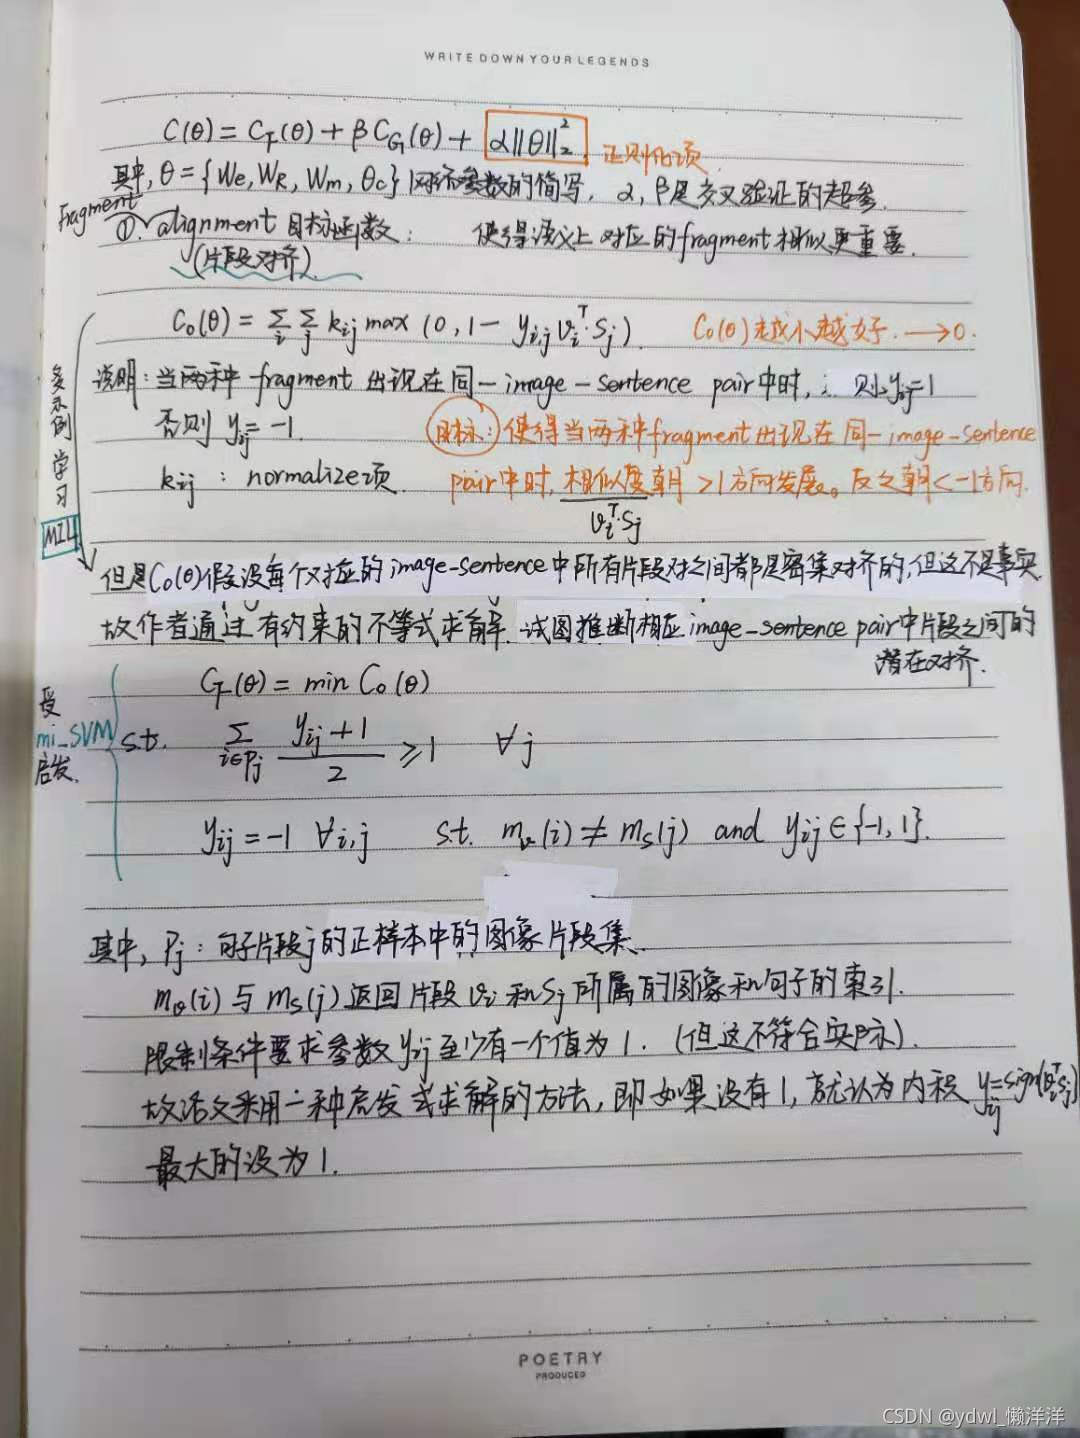 WRITE DOWN YOUR LEGENDS
C(θ) = C_F(θ) + β C_G(θ) + α||θ||₂² 正则化项
其中, θ = {We, WR, Wm, θc} 网络参数的简写, α, β是交叉验证的超参.
Fragment
①. alignment 目标函数: 使得语义上对应的fragment相似更重要.
(片段对齐)
C₀(θ) = Σ_i Σ_j k_ij max (0, 1 − y_i,j v_i^T·S_j). C₀(θ)越小越好. ⟶0.
多示例学习
MIL
说明: 当两种 fragment 出现在同一image-sentence pair中时, 则y_ij=1
否则 y_ij = −1.
目标: 使得当两种fragment出现在同一image-sentence
k_ij : normalize项.
pair中时, 相似度朝 >1方向发展。反之朝<−1方向.
v_i^T·S_j
但是C₀(θ)假设每个对应的image-sentence中所有片段对之间都是密集对齐的,但这不是事实.
故作者通过有约束的不等式求解. 试图推断相应image-sentence pair中片段之间的
潜在对齐.
C_F(θ) = min C₀(θ)
受
mi_SVM
启发.
s.t. Σ_{i∈P_j} (y_ij + 1)/2 ⩾ 1 ∀j
y_ij = −1 ∀i,j s.t. m_v(i) ≠ m_s(j) and y_ij ∈ {−1, 1}.
其中, P_j : 句子片段j的正样本中的图像片段集.
m_v(i) 与 m_s(j) 返回片段 v_i 和 S_j 所属的图像和句子的索引.
限制条件要求参数 y_ij 至少有一个值为 1. (但这不符合实际).
故该文采用一种启发式求解的方法, 即如果没有1, 就认为内积 y_ij=sign(v_i^T S_j)
最大的设为 1.
POETRY
PRODUCED
CSDN @ydwl_懒洋洋